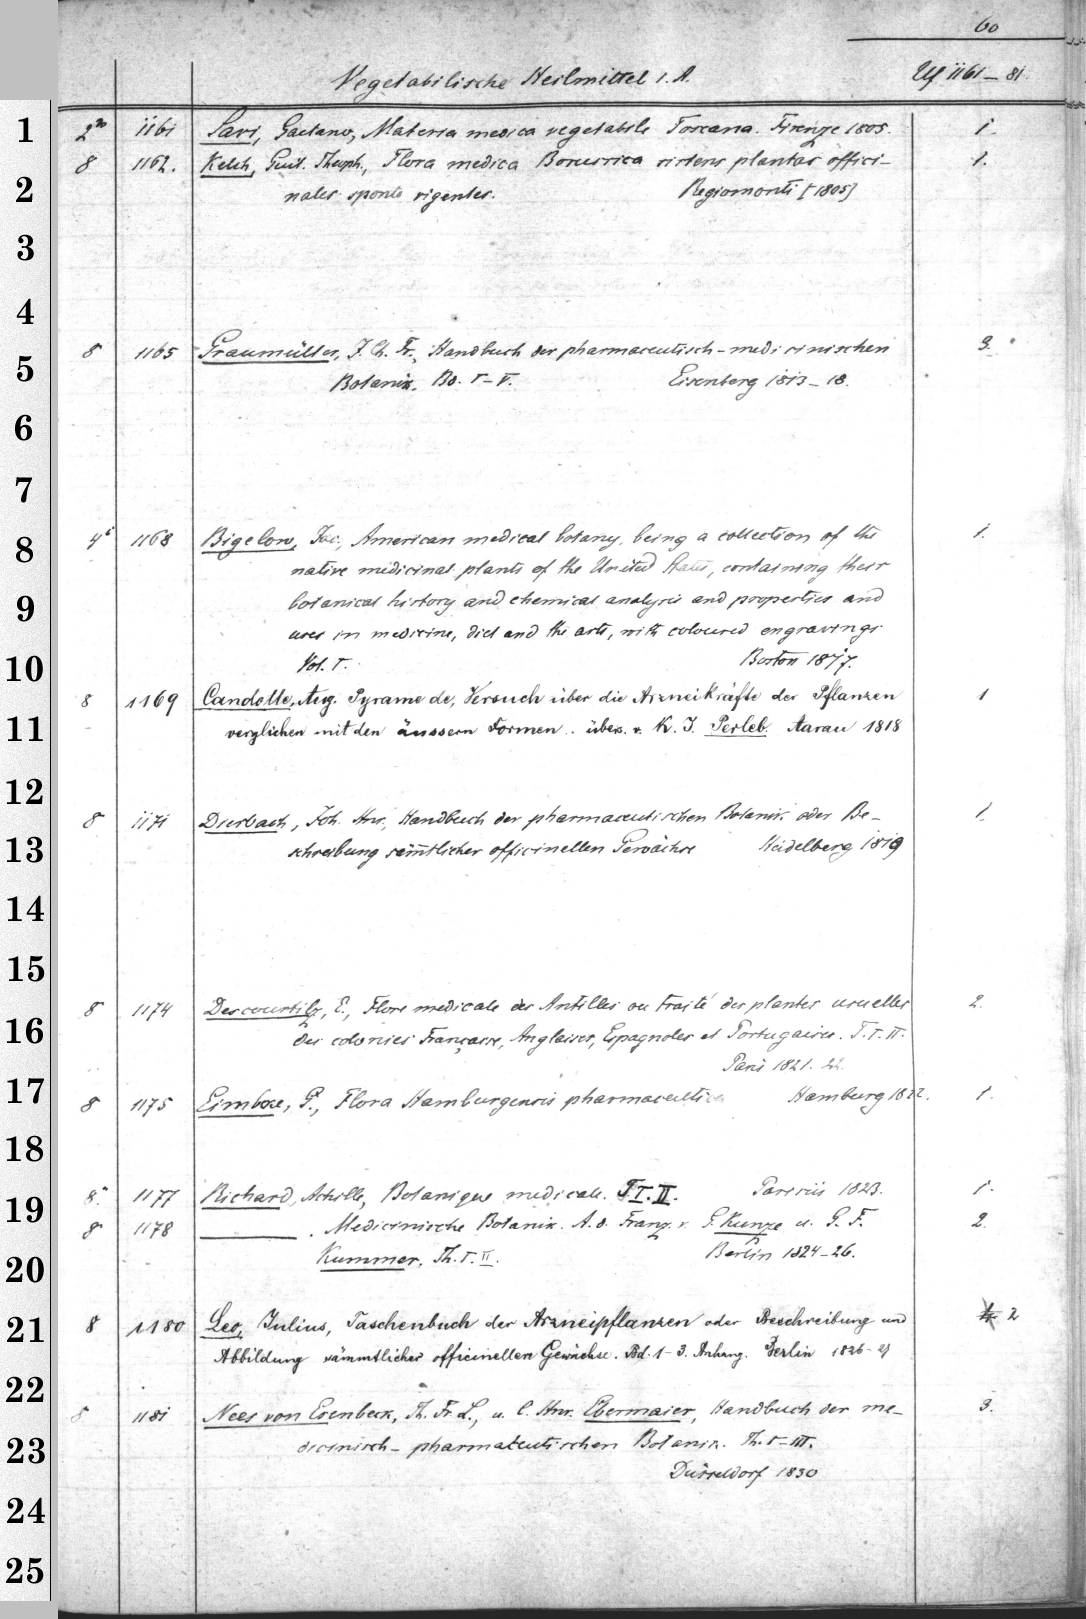 60
Vegetabilische Heilmittel i. A. Uf 1161–81
1
2° 1161 Savi, Gaetano, Materia medica vegetabile Toscana. Firenze 1805. 1.
8 1162. Kelch, Guil. Theoph., Flora medica Borussica sistens plantas offici–
2
nales sponte vigentes. Regiomonti [1805] 1.
3
4
8 1165 Graumüller, J. Ch. Fr., Handbuch der pharmaceutisch-medicinischen 3.
5
Botanik. Bd. I–V. Eisenberg 1813–18.
6
7
8
4° 1168 Bigelow, Jac., American medical botany, being a collection of the 1.
native medicinal plants of the United States, containing their
9
botanical history and chemical analysis and properties and
uses in medicine, diet and the arts, with coloured engravings
10
Vol. I. Boston 1817.
8 1169 Candolle, Aug. Pyrame de, Versuch über die Arzneikräfte der Pflanzen 1
11
verglichen mit den äussern Formen. übers. v. K. J. Perleb. Aarau 1818
12
8 1171 Dierbach, Joh. Hnr., Handbuch der pharmaceutischen Botanik oder Be– 1.
13
schreibung sämtlicher officinellen Gewächse Heidelberg 1819
14
15
8 1174 Descourtilz, E., Flore medicale des Antilles ou traité des plantes usuelles 2.
16
des colonies Française, Anglaises, Espagnoles et Portugaises. T. I. II.
Paris 1821. 22.
17
8 1175 Eimbcke, G., Flora Hamburgensis pharmaceutica Hamburg 1822. 1.
18
8° 1177 Richard, Achille, Botanique medicale. T I. II. Parisiis 1823. 1.
19
8 1178 ——— . Medicinische Botanik. A. d. Franz. v. G. Kunze u. G. F. 2.
Kummer. Th. I. II. Berlin 1824–26.
20
8 1180 Leo, Julius, Taschenbuch der Arzneipflanzen oder Beschreibung und 2
21
Abbildung sämmtlicher officinellen Gewächse. Bd. 1–3. Anhang. Berlin 1826–27
22
8 1181 Nees von Esenbeck, Th. Fr. L., u. C. Hnr. Ebermaier, Handbuch der me– 3.
23
dicinisch-pharmaceutischen Botanik. Th. I–III.
Düsseldorf 1830
24
25